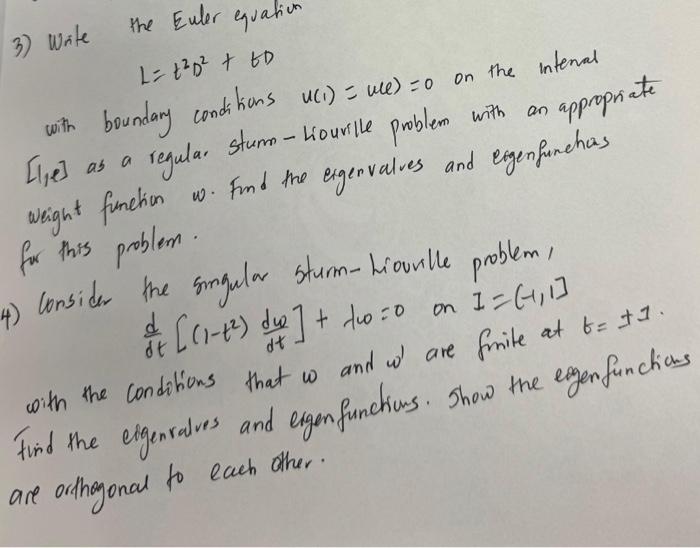 3) Write the Euler equation
L = t²D² + tD
with boundary conditions u(1) = u(e) = 0 on the interval
[1,e] as a regular sturm-Liouville problem with an appropriate
weight function w. Find the eigenvalues and eigenfunctions
for this problem.
4) Consider the singular sturm-Liouville problem,
d/dt [(1-t²) dw/dt] + λw = 0 on I = (-1,1]
with the conditions that w and w' are finite at t = ±1.
Find the eigenvalues and eigenfunctions. Show the eigenfunctions
are orthogonal to each other.